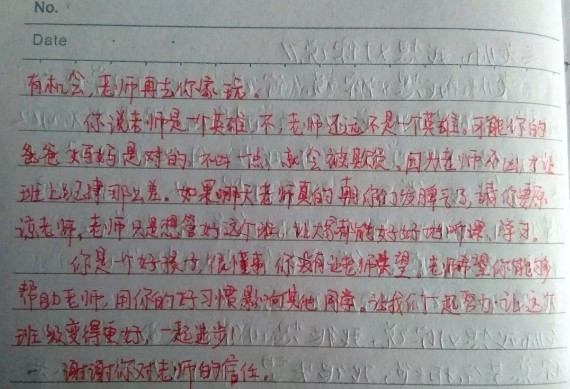 No.
Date
有机会,老师再去你家玩。
你说老师是一个英雄,不,老师还远不是一个英雄。可能你的
爸爸妈妈是对的,不凶一点,就会被欺负。因为老师不凶,才让
班上纪律那么差。如果哪天老师真的朝你们发脾气了,请你要原
谅老师,老师只是想管好这个班,让大家都能好好地听课、学习。
你是一个好孩子,很懂事,你没有让老师失望。老师希望你能够
帮助老师,用你的好习惯影响其他同学。让我们一起努力,让这个
班级变得更好,一起进步!
谢谢你对老师的信任。